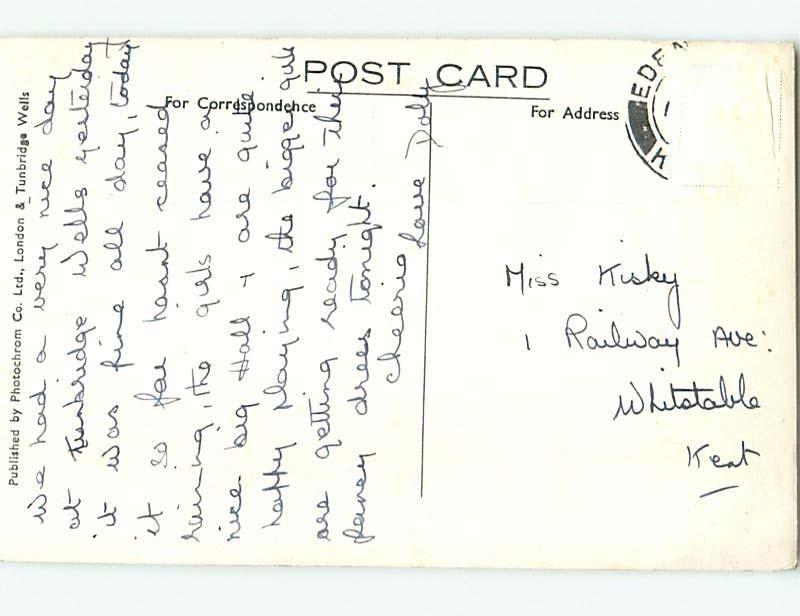 POST CARD
For Correspondence
For Address
Published by Photochrom Co. Ltd., London & Tunbridge Wells
We had a very nice day
at Tunbridge Wells yesterday
it was fine all day, today
it so far hasnt ceased
raining, the girls have a
nice big Hall + are quite
happy playing, the bigger girls
are getting ready for their
fancy dress tonight.
cheerio love Dolly
EDE
K
Miss Kisby
1 Railway Ave:
Whitstable
Kent